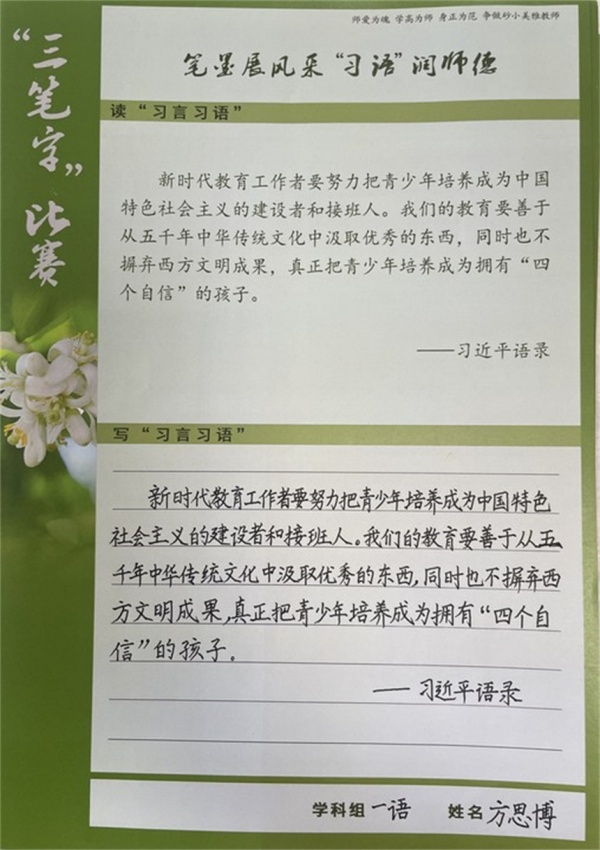 师爱为魂 学高为师 身正为范 争做砂小美雅教师
“三笔字”比赛
笔墨展风采“习语”润师德
读“习言习语”
新时代教育工作者要努力把青少年培养成为中国
特色社会主义的建设者和接班人。我们的教育要善于
从五千年中华传统文化中汲取优秀的东西，同时也不
摒弃西方文明成果，真正把青少年培养成为拥有“四
个自信”的孩子。
——习近平语录
写“习言习语”
新时代教育工作者要努力把青少年培养成为中国特色
社会主义的建设者和接班人。我们的教育要善于从五
千年中华传统文化中汲取优秀的东西,同时也不摒弃西
方文明成果,真正把青少年培养成为拥有“四个自
信”的孩子。
——习近平语录
学科组 一语 姓名 方思博